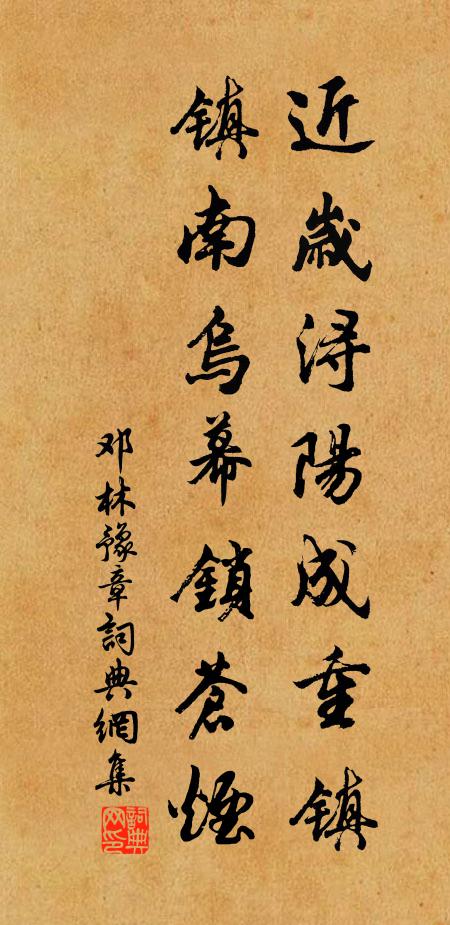 近歲浔陽成重鎮
鎮南烏幕鎖蒼煙
邓林豫章詞典網集
詞典
网印